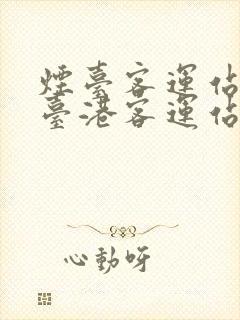 煙臺客運佔
臺港客運佔
心動呀